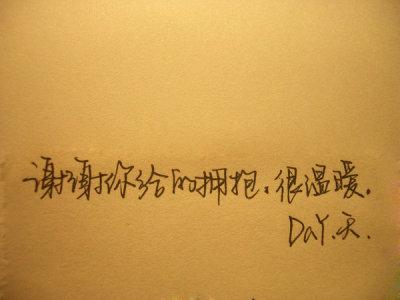 谢谢你给的拥抱。很温暖。
DaY.天.